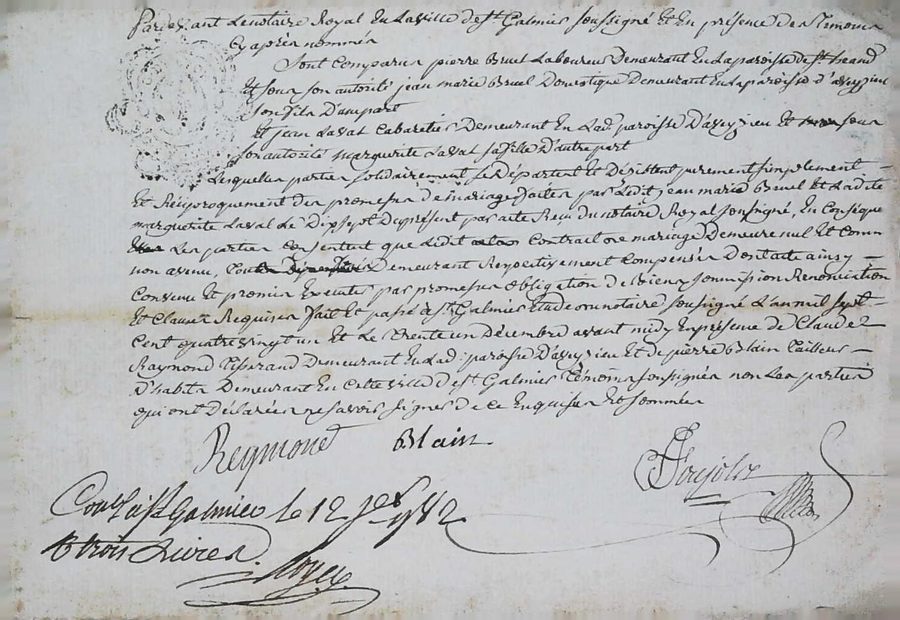 Pardevant Le notaire Royal En La ville de St Galmier soussigné Et En présence des temoins
Cy après nommés
Sont Comparus pierre Bruel Laboureur Demeurant En La paroisse de St
Et sous son autorité jean marie Bruel Domestique Demeurant En La paroisse d'aveyzieu
son fils D'une part
Et jean Laval Cabaretier Demeurant En Lad. paroisse D'aveyzieu Et sous
son autorité marguerite Laval sa fille D'autre part
Lesquelles parties solidairement se Départent Et Désistent purement simplement
Et Réciproquement des promesses de mariage faites par Ledit jean marie Bruel Et Ladite
marguerite Laval Le Dix sept Du présent par acte Reçu Du notaire Royal soussigné, En Conséque
Les parties Consentent que Ledit Contrat de mariage Demeure nul Et Comme
non avenu, Demeurant Respectivement Compensés Dont acte ainsy
Convenu Et promis Executer par promesses obligation De Biens soumission Renonciation
Et Clauses Requises fait Et passé à St Galmier Etude du notaire soussigné L'an mil sept
Cent quatre vingt un Et Le trente un Décembre avant midy En présence de Claude
Raymond Tisserand Demeurant En Lad. paroisse D'aveyzieu Et de pierre Blain tailleur
D'habits Demeurant En Cette ville de St Galmier témoins soussignés non Les parties
qui ont Déclarées ne savoir signer de ce Enquises Et sommées
Reymond Blain
Con. à St Galmier le 12 1782
trois Livres